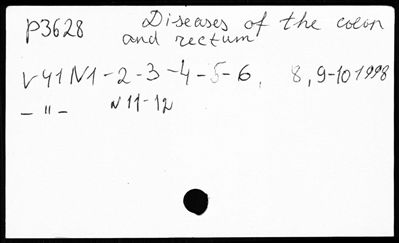 P3628 Diseases of the colon
and rectum
V 41 N1-2-3-4-5-6, 8, 9-10 1998
-"- N 11-12